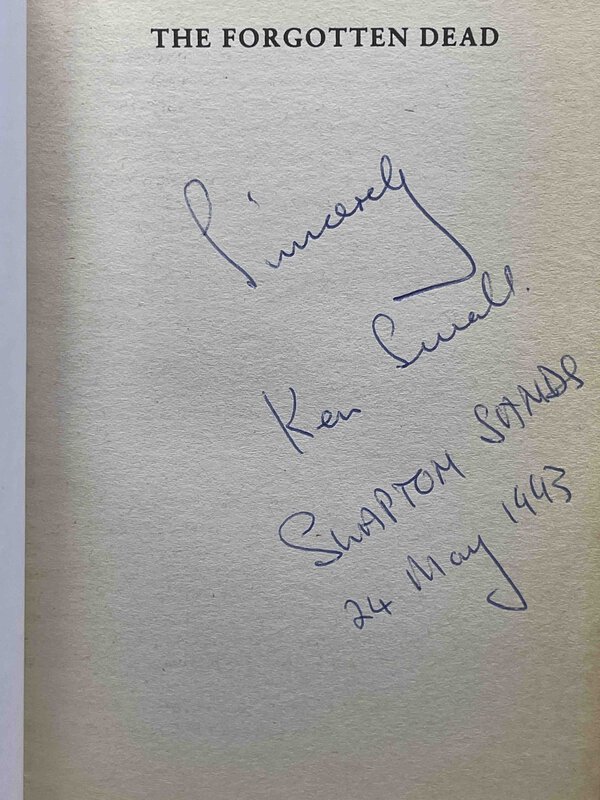 THE FORGOTTEN DEAD
Sincerely
Ken Small.
SLAPTON SANDS
24 May 1993